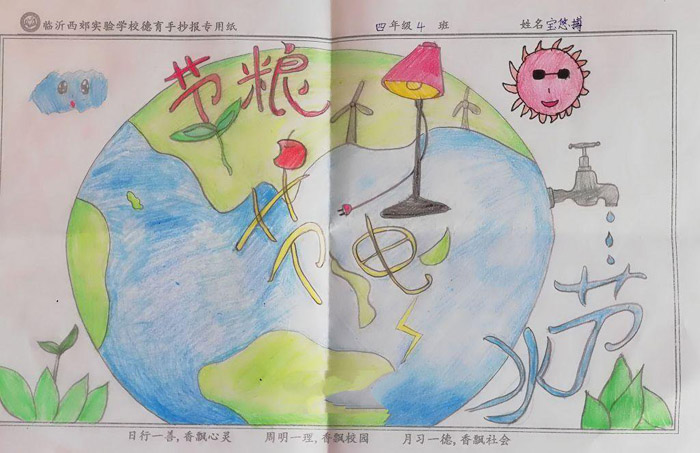 临沂西郊实验学校德育手抄报专用纸 四年级4班 姓名宝悠搏
节粮
节电
节水
日行一善,香飘心灵 周明一理,香飘校园 月习一德,香飘社会